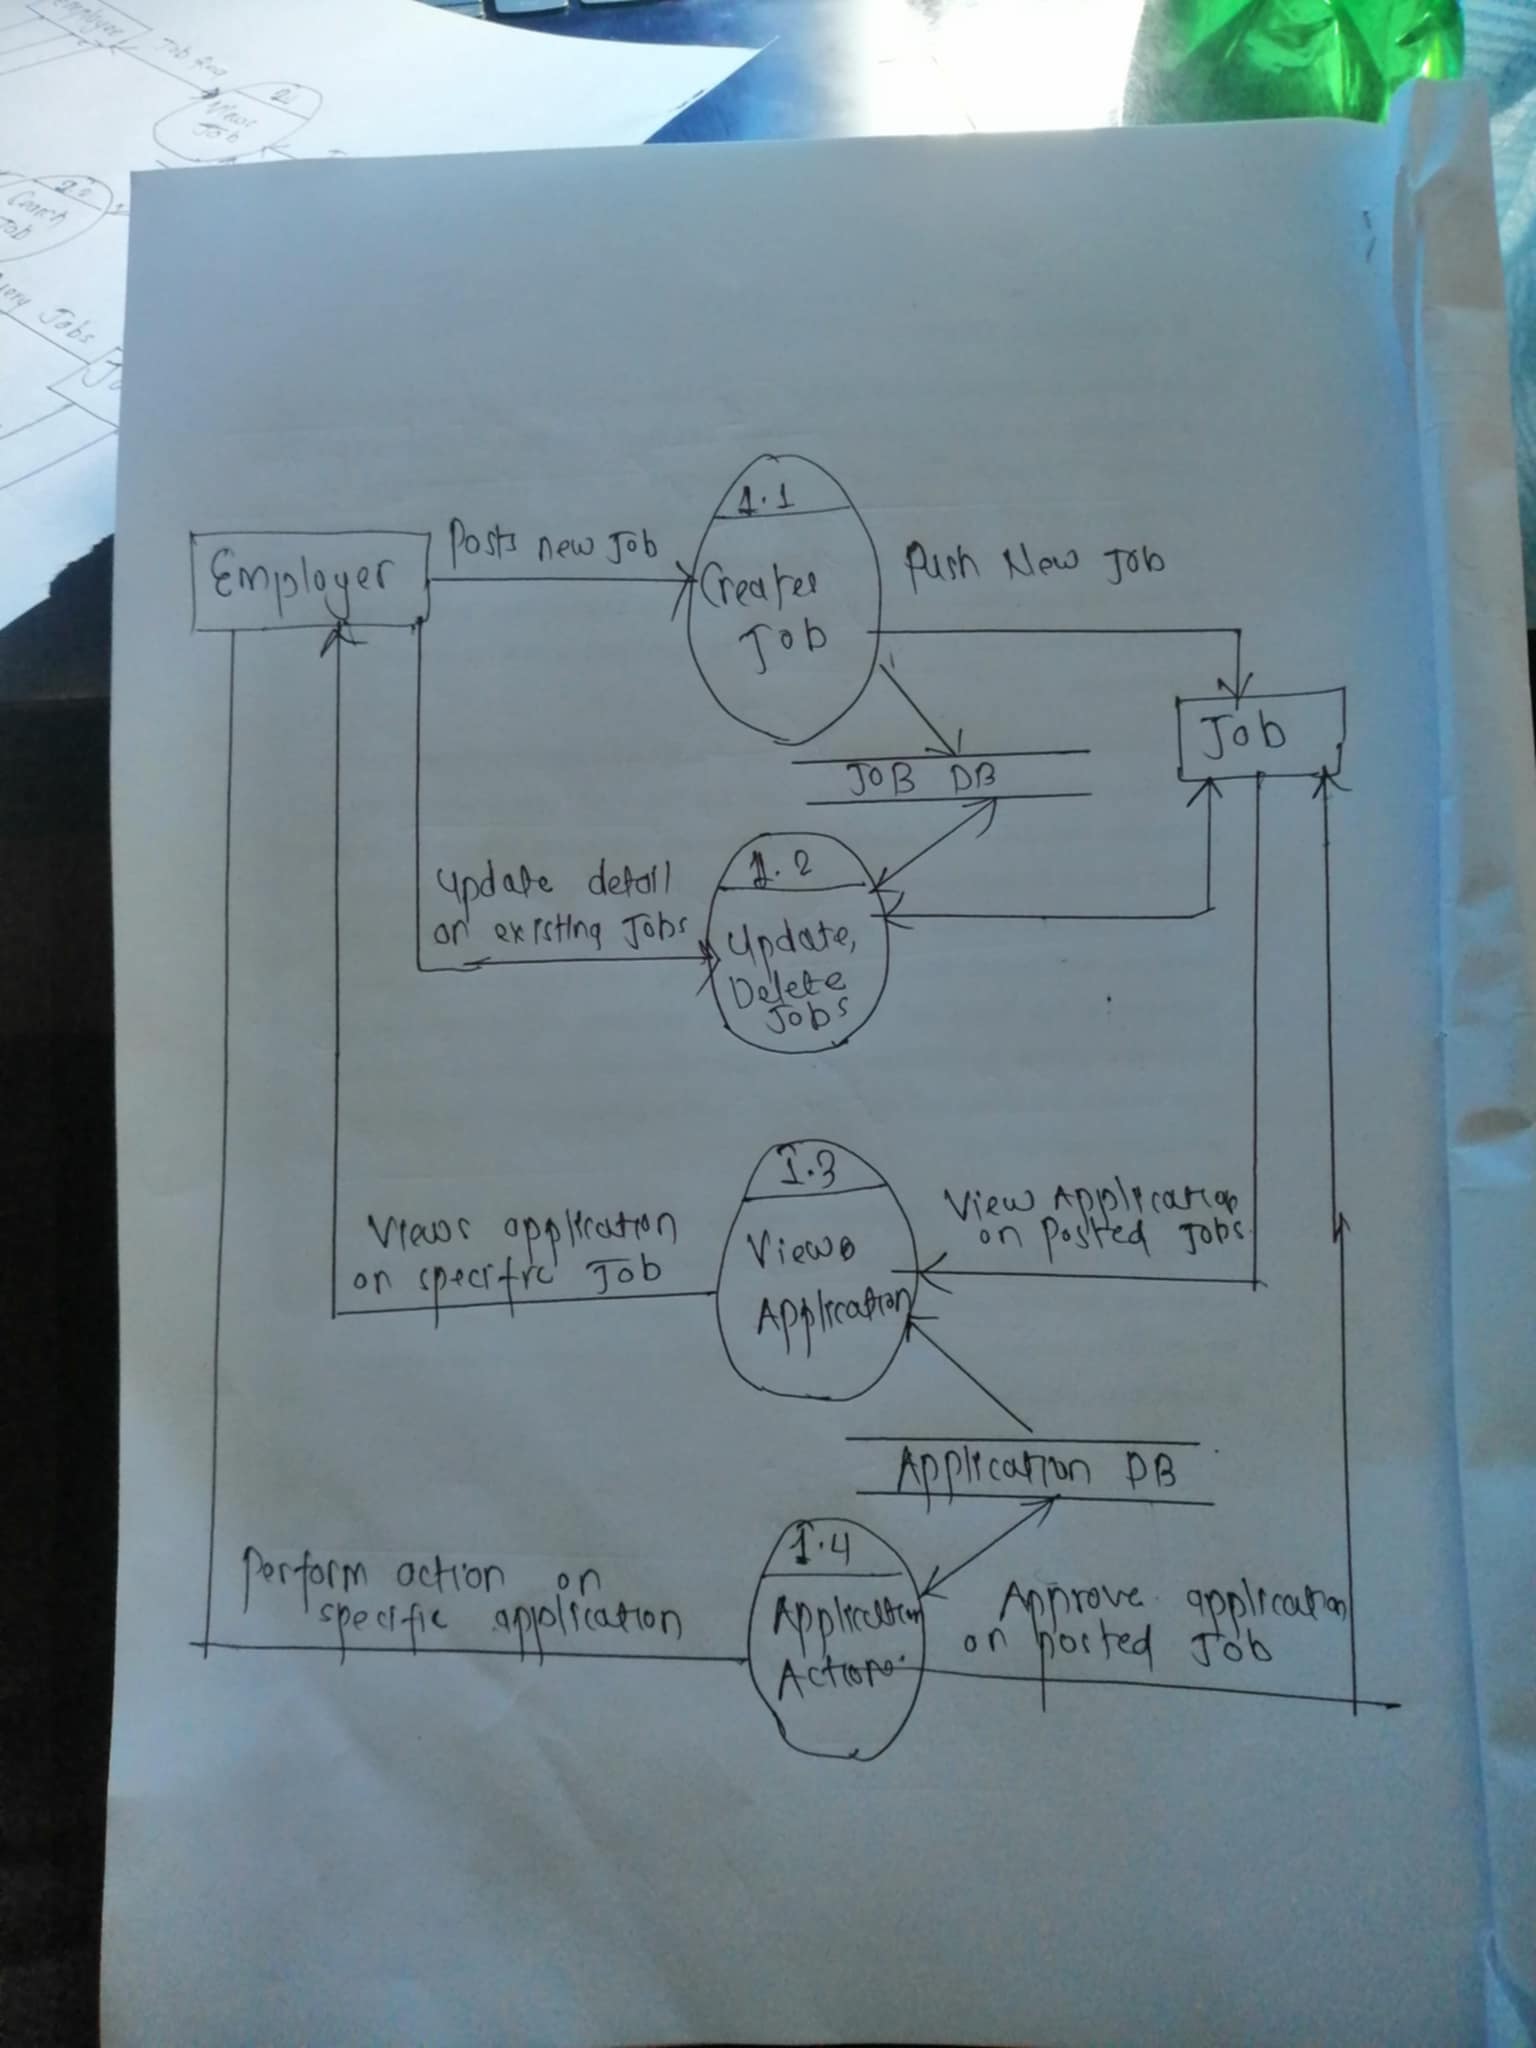 Employer
Job
View
Job
2.2
Search
Job
Jobs
Employer
Posts new Job
1.1
Creates
Job
Push New Job
Job
JOB DB
Update detail
on existing Jobs
1.2
Update,
Delete
Jobs
Views application
on specific Job
1.3
Views
Application
View Application
on Posted Jobs
Application DB
Perform action on
specific application
1.4
Application
Actions
Approve application
on posted Job